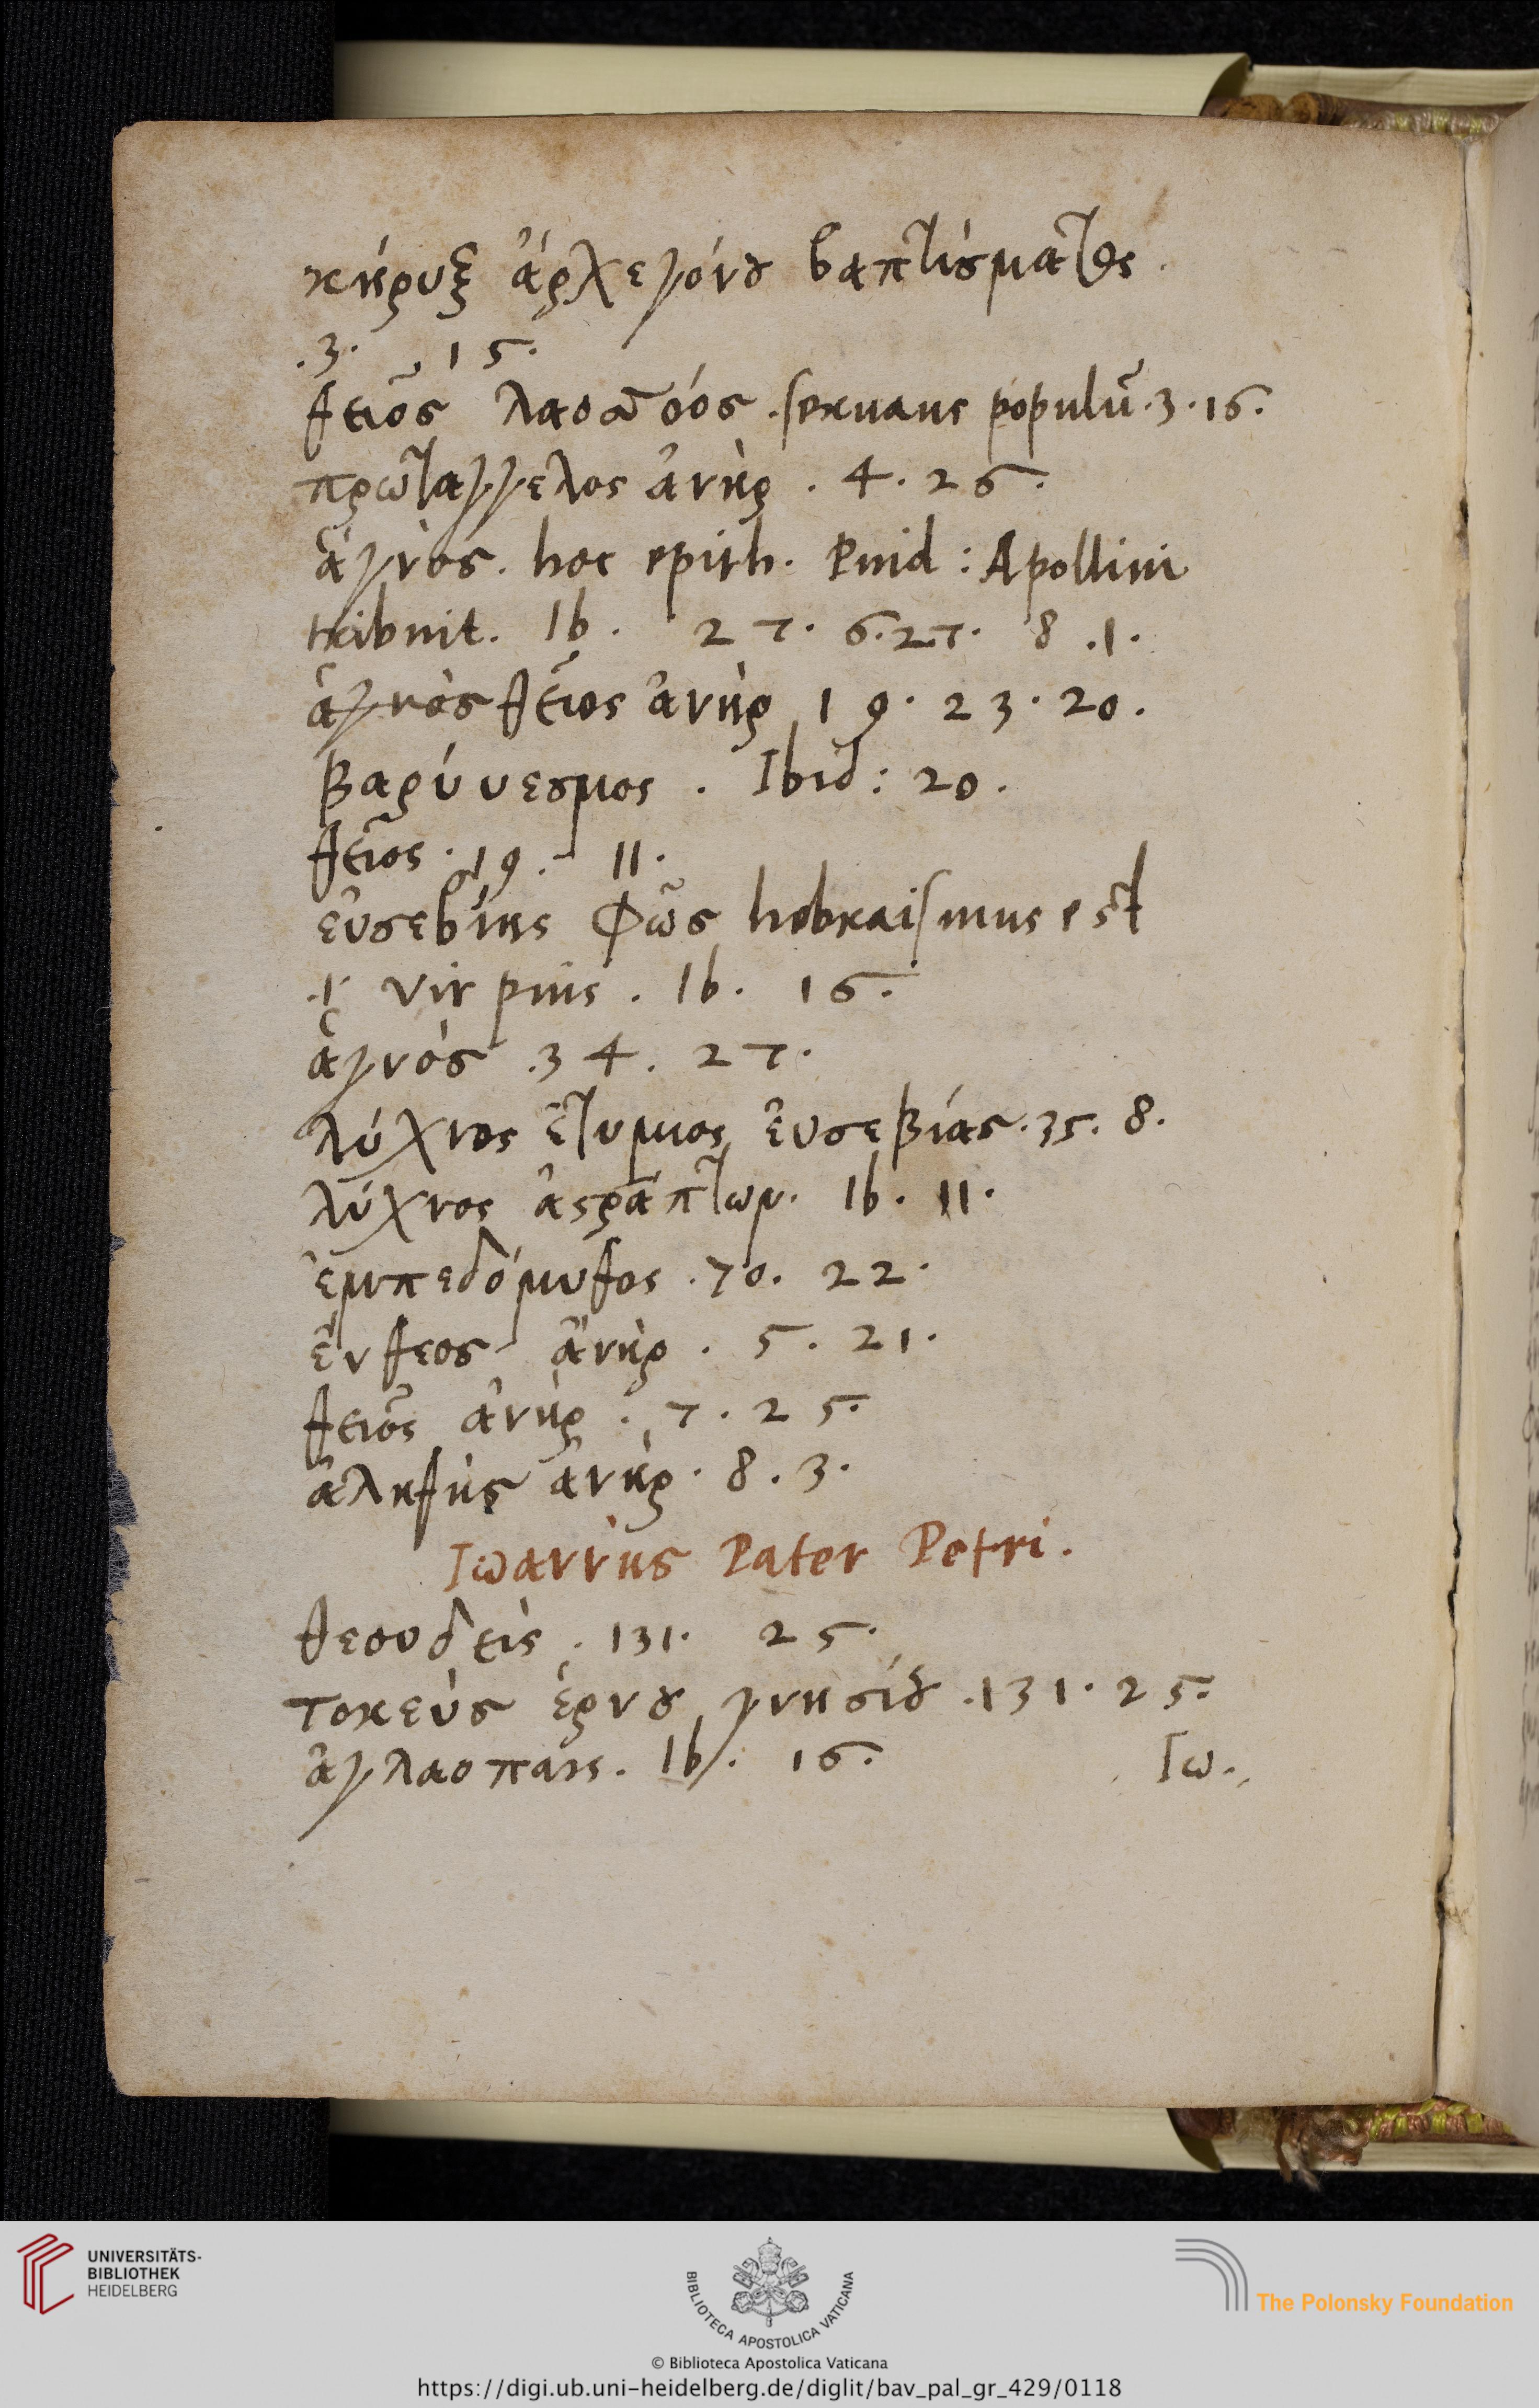 κήρυξ ἀρχεγόνου βαπτίσματος.
.3. 15.
θεῖος λαοσσόος. seruans populū. 3. 16.
πρωτάγγελος ἀνὴρ. 4. 26.
ἁγνὸς. hoc epith. Pind: Apollini
tribuit. Ib. 27. 6. 27. 8. 1.
ἁγνὸς θεῖος ἀνὴρ 19. 23. 20.
Βαρύ Ibid: 20.
θεῖος. 19. 11.
εὐσεβίης φῶς hebraismus est
.i. vir pius. Ib. 16.
ἁγνός. 34. 27.
λύχνος ἐτύμιος εὐσεβίας. 35. 8.
λύχνος ἀστράπτων. Ib. 11.
ἐμπεδόμυθος. 70. 22.
ἔνθεος ἀνὴρ. 5. 21.
θεῖος ἀνὴρ. 7. 25.
ἀληθὴς ἀνὴρ. 8. 3.
Ιωάννης Pater Petri.
θεουδεὶς. 131. 25.
τοκεὺς ἔρνου γνησίου. 131. 25.
ἀγλαοπαις. Ib. 16.
Ιω.
UNIVERSITÄTS-
BIBLIOTHEK
HEIDELBERG
BIBLIOTECA APOSTOLICA VATICANA
The Polonsky Foundation
© Biblioteca Apostolica Vaticana
https://digi.ub.uni-heidelberg.de/diglit/bav_pal_gr_429/0118